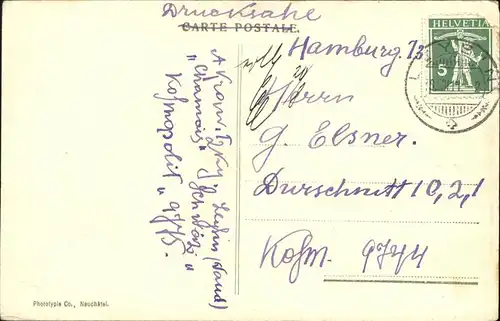 Drucksahe
CARTE POSTALE.
HELVETIA
5
Hamburg. 13
Herrn
G. Elsner.
Durschnitt 10, 2, 1
Kosm. 9744
A.
Leysin (Vaud)
"Chamois" Schweiz
Kosmopolit "9775.
Phototypie Co., Neuchâtel.